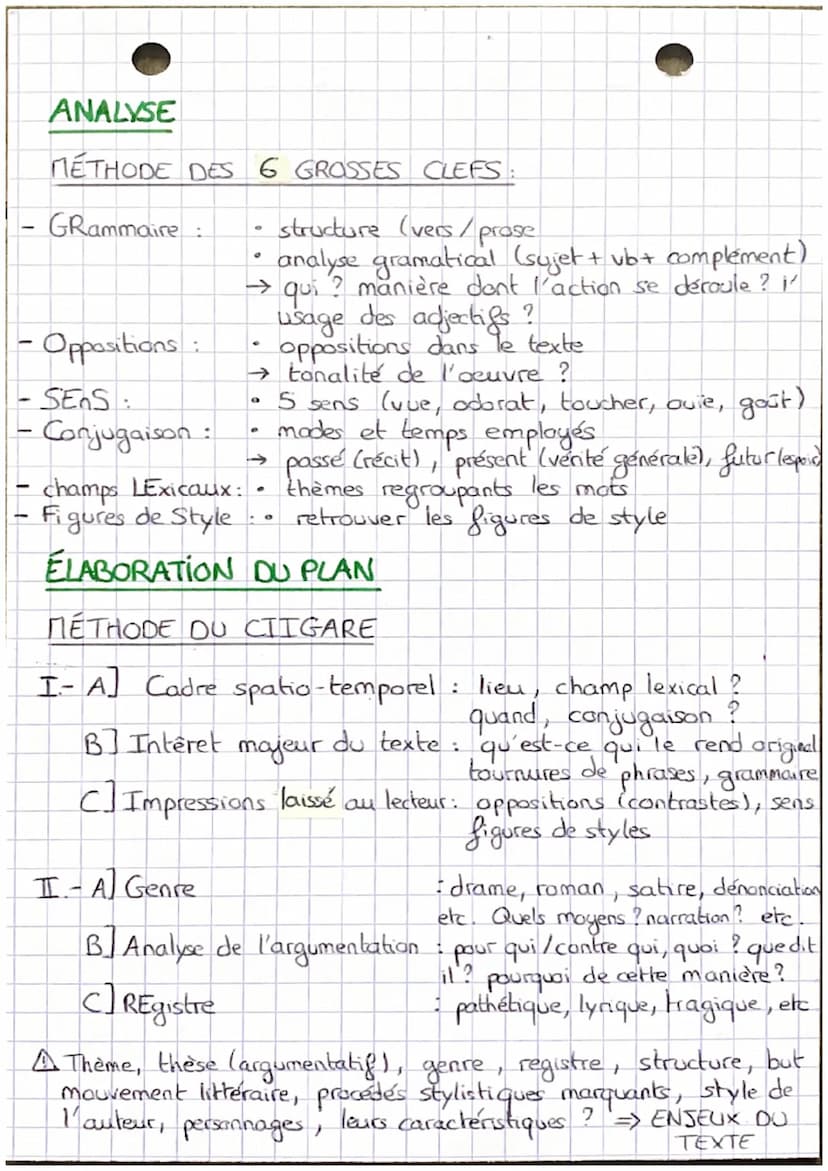 ANALYSE
MÉTHODE DES 6 GROSSES CLEFS :
- GRammaire : • structure (vers / prose
• analyse gramatical (sujet + vb + complément)
→ qui ? manière dont l'action se déroule ? l'
usage des adjectifs ?
- Oppositions : • oppositions dans le texte
→ tonalité de l'oeuvre ?
- SEnS : • 5 sens (vue, odorat, toucher, ouie, goût)
- Conjugaison : • modes et temps employés
→ passé (récit), présent (vérité générale), futur (espoir)
- champs LExicaux : • thèmes regroupants les mots
- Figures de Style : • retrouver les figures de style
ÉLABORATION DU PLAN
MÉTHODE DU CIIGARE
I.- A] Cadre spatio-temporel : lieu, champ lexical ?
quand, conjugaison ?
B] Intêret majeur du texte : qu'est-ce qui le rend original
tournures de phrases, grammaire
C] Impressions laissé au lecteur : oppositions (contrastes), sens
figures de styles
II.- A] Genre : drame, roman, satire, dénonciation
etc. Quels moyens ? narration ? etc.
B] Analyse de l'argumentation : pour qui / contre qui, quoi ? que dit
il ? pourquoi de cette manière ?
C] REgistre : pathétique, lyrique, tragique, etc
⚠ Thème, thèse (argumentatif), genre, registre, structure, but
mouvement littéraire, procédés stylistiques marquants, style de
l'auteur, personnages, leurs caractéristiques ? ⇒ ENJEUX DU
TEXTE